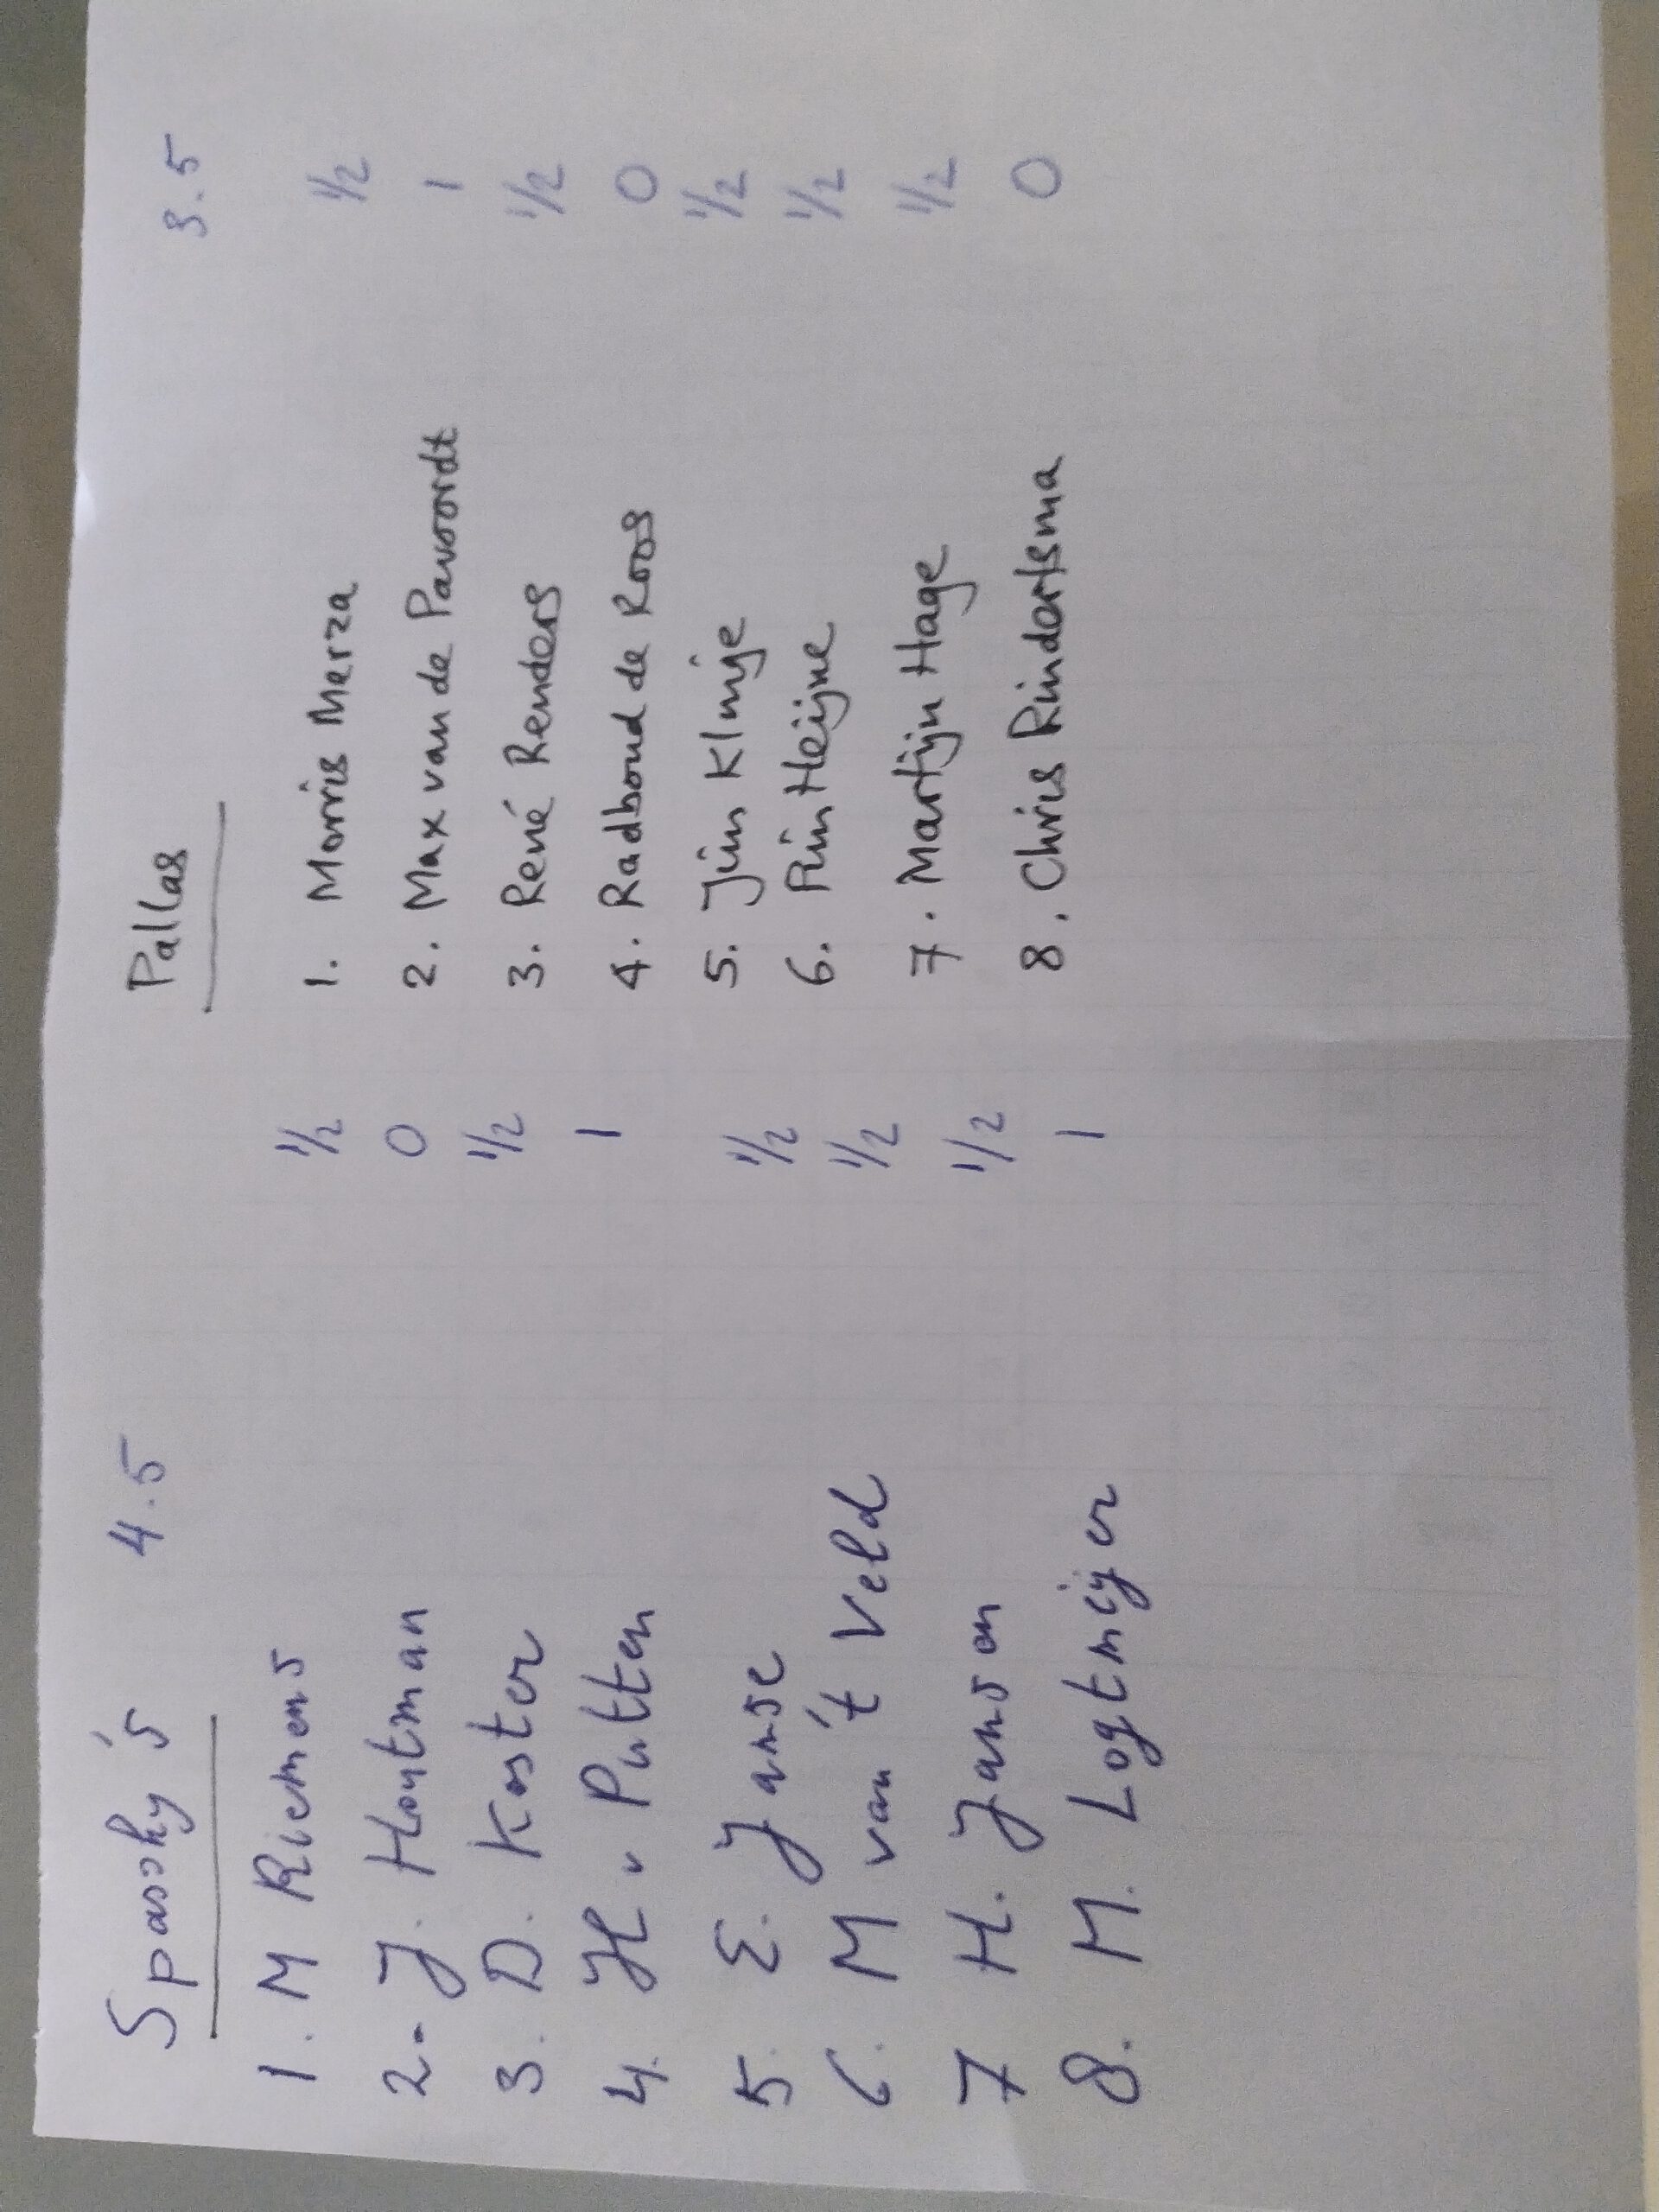 Spassky's 4.5
1. M Riemens 1/2
2- J. Houtman 0
3. D. Koster 1/2
4. H v Putten 1
5. E. Janse 1/2
6. M van 't Veld 1/2
7 H. Jansen 1/2
8. M. Logtmeijer 1
Pallas 3.5
1. Morris Merza 1/2
2. Max van de Pavoordt 1
3. René Renders 1/2
4. Radboud de Roos 0
5. Jim 1/2
6. Pim Heijne 1/2
7. Martijn Hage 1/2
8. Chris Rindertsma 0